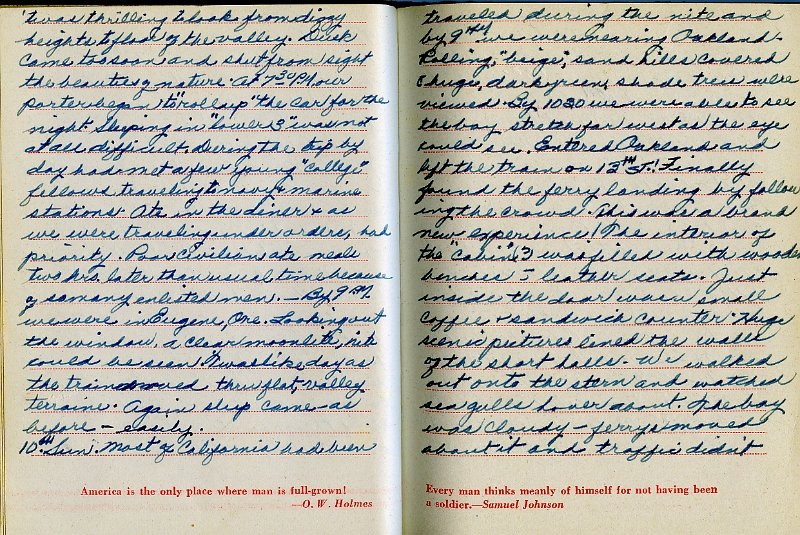 'twas thrilling to look from dizzy
heights to floor of the valley. Dusk
came too soon and shut from sight
the beauties of nature. At 7:30 PM our
porter began to "roll up" the car for the
night. Sleeping in "lower 3" was not
at all difficult. During the trip by
day had met a few young "college"
fellows traveling to navy & marine
stations. Ate in the diner & as
we were traveling under orders, had
priority. Poor civilian ate meals
two hrs. later than usual time because
of so many enlisted men. — By 9 PM.
we were in Eugene, Ore. Looking out
the window, a clear moonlite, nite
could be seen. T'was like day as
the train moved thru flat, valley
terraine. Again sleep came - as
before - easily.
10th Sun. Most of California had been
America is the only place where man is full-grown!
—O. W. Holmes
traveled during the nite and
by 9 we were nearing Oakland.
Rolling, "beige", sand hills covered
huge, dark green, shade trees were
viewed. By 1030 we were able to see
the bay stretch far west as the eye
could see. Entered Oakland and
left the train on 13th St. Finally
found the ferry landing by follow
ing the crowd. This was a brand
new experience! The interior of
the "cabin" was filled with wooden
benches - leather seats. Just
inside the door was a small
coffee & sandwich counter. Huge
scenic pictures lined the walls
of the short halls. We walked
out onto the stern and watched
sea gulls hover about. The bay
was cloudy - ferrys moved
about it and traffic didn't
Every man thinks meanly of himself for not having been
a soldier.—Samuel Johnson